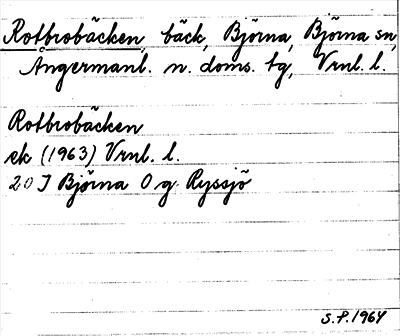 Rotbrobäcken, bäck, Björna, Björna sn,
Ångermanl. n. doms. tg, Vrnl. l.
Rotbrobäcken
ek (1963) Vrnl. l.
20 J Björna O g Ryssjö
S.P. 1964